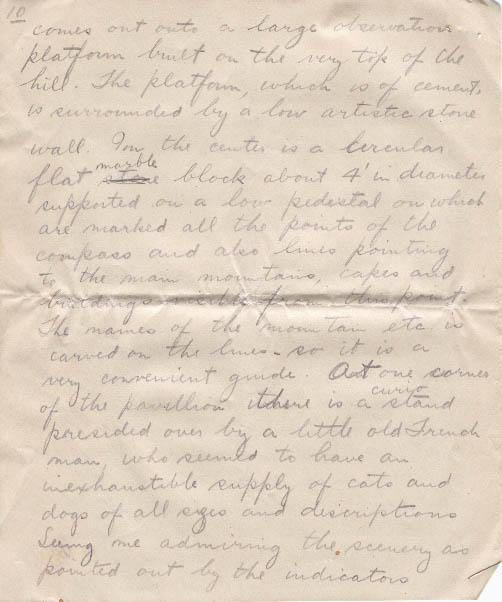 10
comes out onto a large observation
platform built on the very top of the
hill. The platform, which is of cement,
is surrounded by a low artistic stone
wall. In the center is a circular
flat marble stone block about 4' in diameter
supported on a low pedestal on which
are marked all the points of the
compass and also lines pointing
to the main mountains, capes and
buildings visible from this point.
The names of the mountain etc is
carved on the lines - so it is a
very convenient guide. At one corner
of the pavillion there is a curio stand
presided over by a little old French
man, who seemed to have an
inexhaustible supply of cats and
dogs of all sizes and descriptions
Seeing me admiring the scenery as
pointed out by the indicators